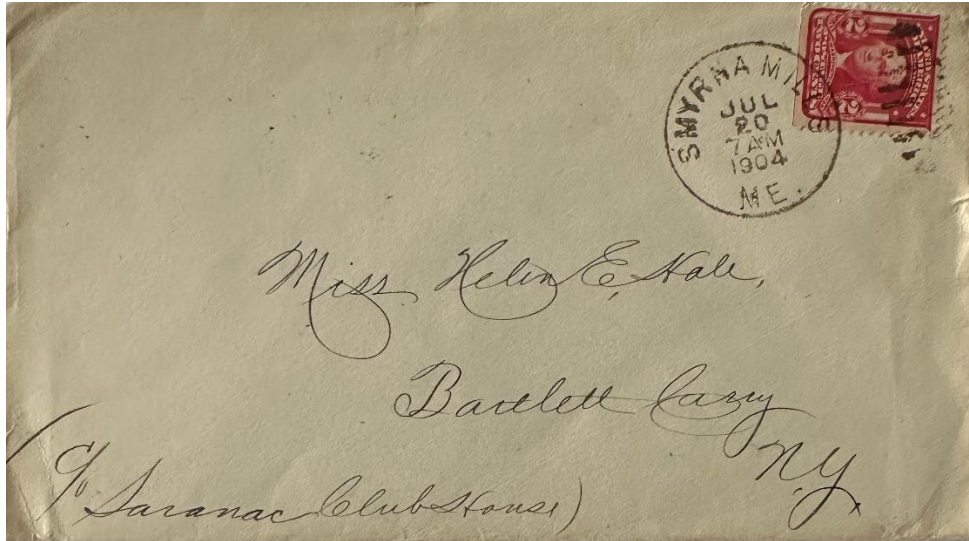 SMYRNA MILLS
JUL
20
7 AM
1904
ME.
Miss Helen E. Hale,
Bartlett Carry
N.Y.
(c/o Saranac Club House)